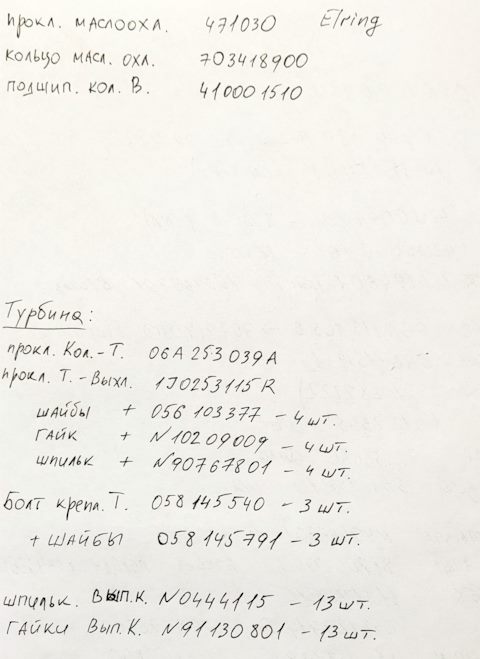 прокл. маслоохл. 471030 Elring
кольцо масл. охл. 703418900
подшип. кол. В. 410001510
Турбина:
прокл. Кол.-Т. 06A 253 039A
прокл. Т.-Выхл. 1J0253115R
шайбы + 056 103377 - 4 шт.
гайк + N10209009 - 4 шт.
шпильк + N90767801 - 4 шт.
Болт крепл. Т. 058 145540 - 3 шт.
+ шайбы 058 145791 - 3 шт.
шпильк. вып.к. N0444115 - 13 шт.
гайки вып.к. N91130801 - 13 шт.